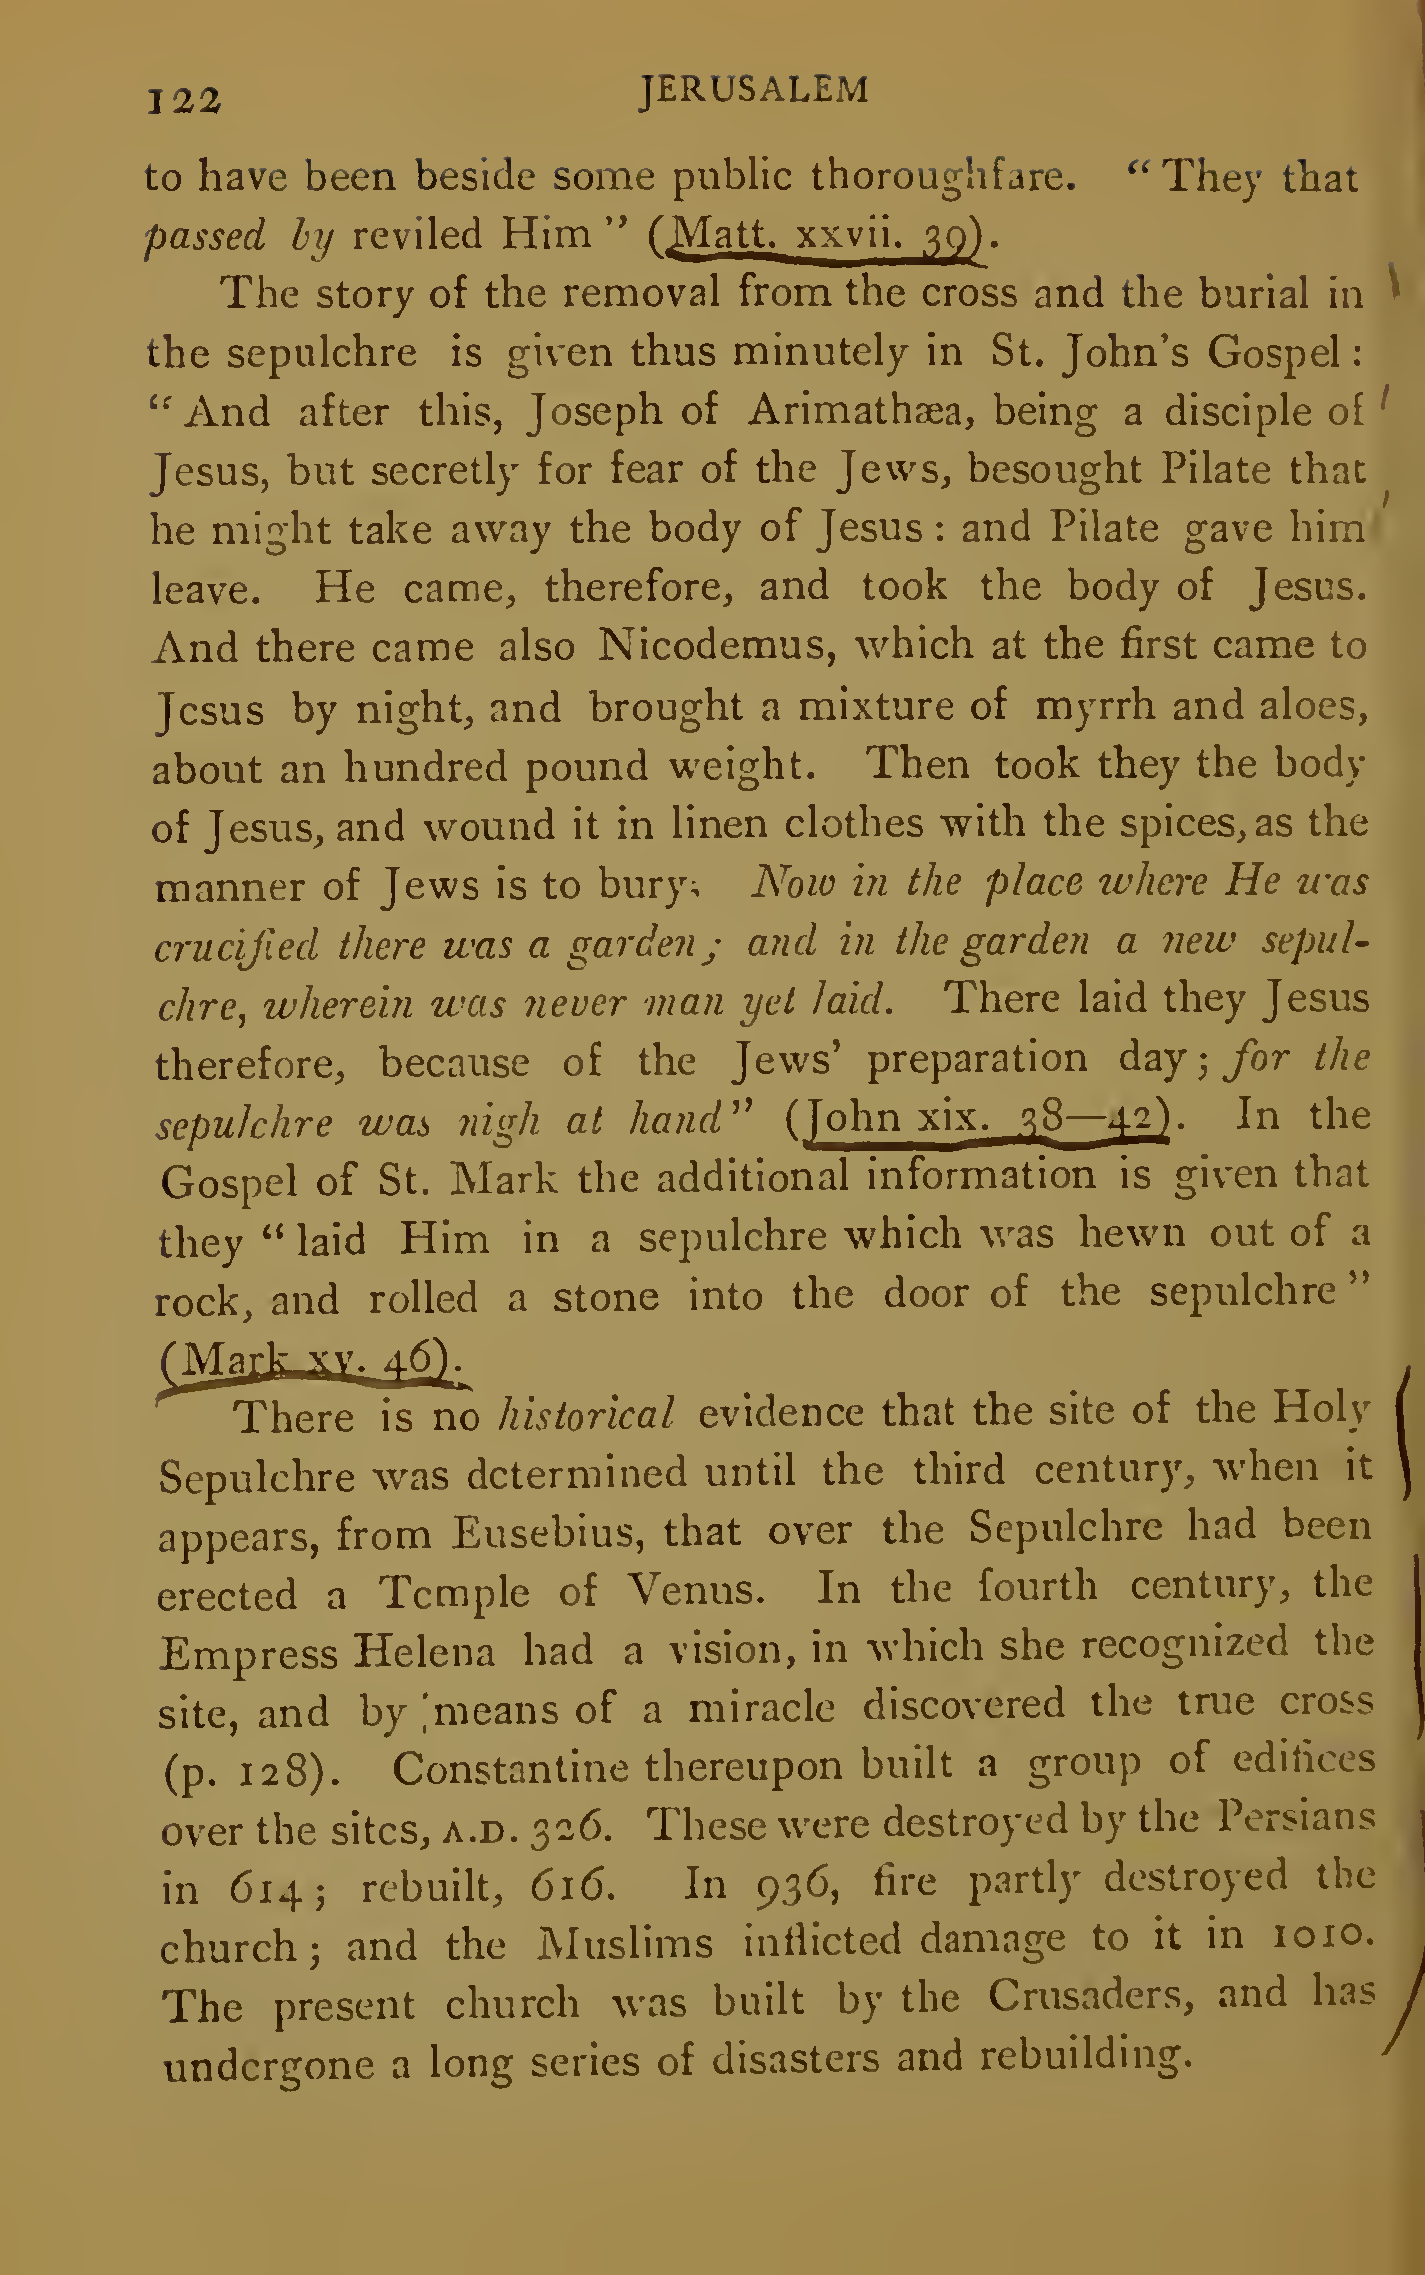 122 JERUSALEM
to have been beside some public thoroughfare. “They that
passed by reviled Him” (Matt. xxvii. 39).
The story of the removal from the cross and the burial in
the sepulchre is given thus minutely in St. John’s Gospel:
“And after this, Joseph of Arimathæa, being a disciple of
Jesus, but secretly for fear of the Jews, besought Pilate that
he might take away the body of Jesus: and Pilate gave him
leave. He came, therefore, and took the body of Jesus.
And there came also Nicodemus, which at the first came to
Jesus by night, and brought a mixture of myrrh and aloes,
about an hundred pound weight. Then took they the body
of Jesus, and wound it in linen clothes with the spices, as the
manner of Jews is to bury. Now in the place where He was
crucified there was a garden; and in the garden a new sepul-
chre, wherein was never man yet laid. There laid they Jesus
therefore, because of the Jews’ preparation day; for the
sepulchre was nigh at hand” (John xix. 38—42). In the
Gospel of St. Mark the additional information is given that
they “laid Him in a sepulchre which was hewn out of a
rock, and rolled a stone into the door of the sepulchre”
(Mark xv. 46).
There is no historical evidence that the site of the Holy
Sepulchre was determined until the third century, when it
appears, from Eusebius, that over the Sepulchre had been
erected a Temple of Venus. In the fourth century, the
Empress Helena had a vision, in which she recognized the
site, and by means of a miracle discovered the true cross
(p. 128). Constantine thereupon built a group of edifices
over the sites, A.D. 326. These were destroyed by the Persians
in 614; rebuilt, 616. In 936, fire partly destroyed the
church; and the Muslims inflicted damage to it in 1010.
The present church was built by the Crusaders, and has
undergone a long series of disasters and rebuilding.